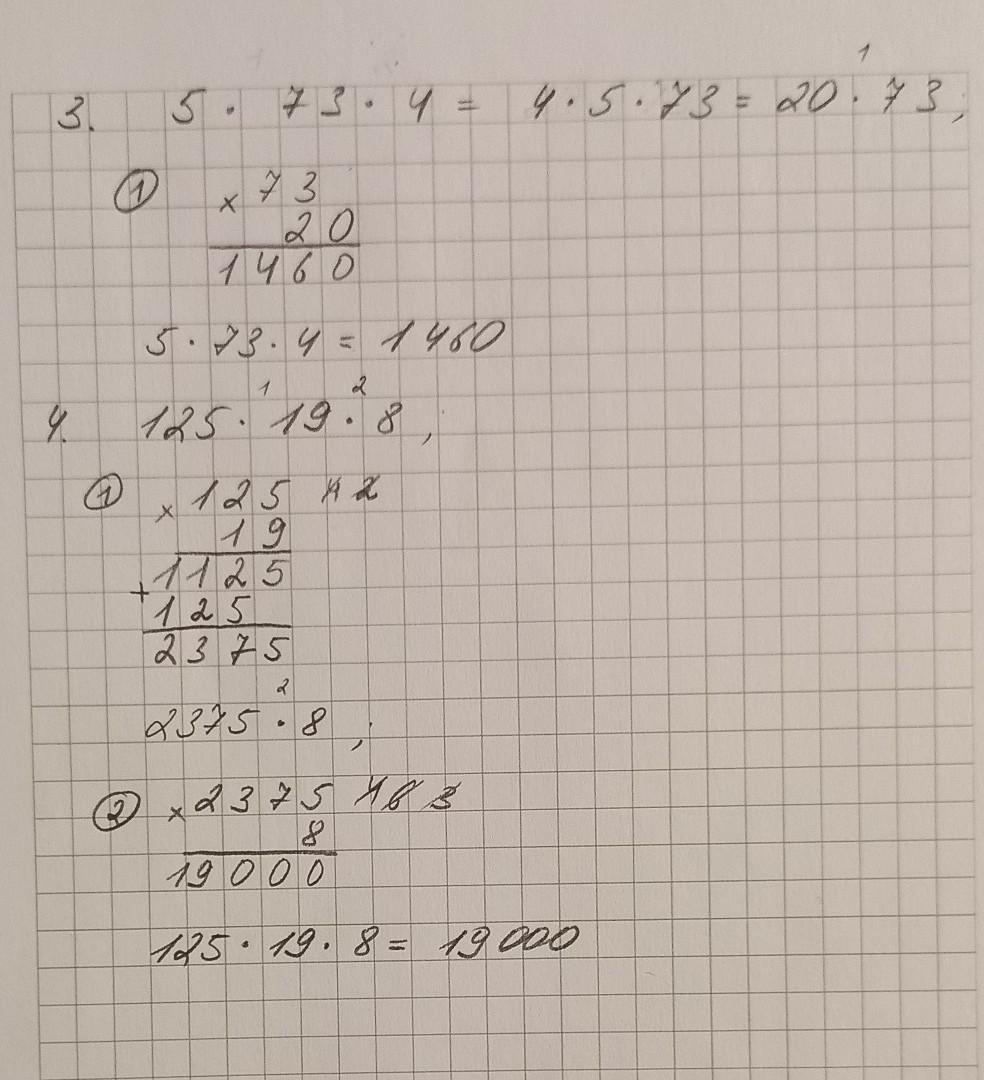 3. 5 · 73 · 4 = 4 · 5 · 73 = 20 ·¹ 73;
① × 73
20
1460
5 · 73 · 4 = 1460
4. 125 ·¹ 19 ·² 8,
① × 125
19
1125
+
125
2375
2375 ·² 8;
② × 2375
8
19000
125 · 19 · 8 = 19000